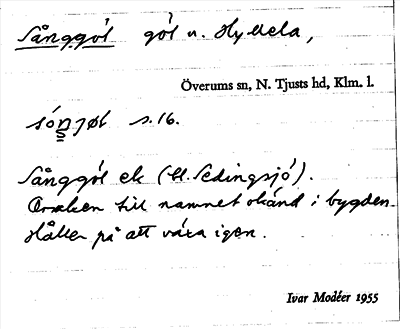 Sånggöl göl u. Hyddela,
Överums sn, N. Tjusts hd, Klm. l.
s. 16.
Sånggöl ek (bl. Sedingsjö).
Orsaken till namnet okänd i bygden.
Håller på att växa igen.
Ivar Modéer 1955